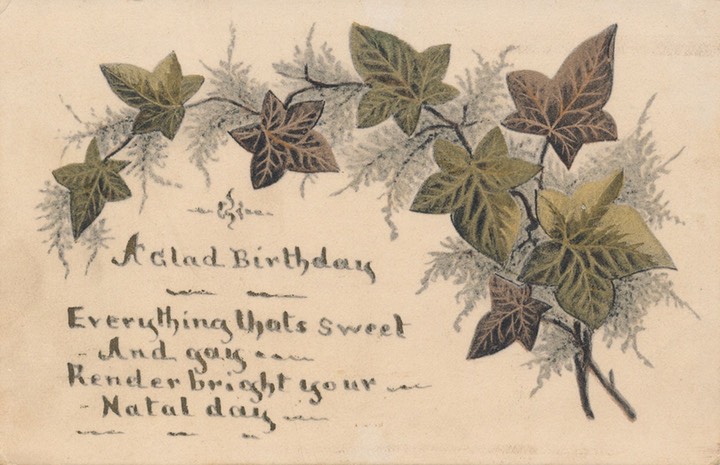 A Glad Birthday
Everything thats sweet
And gay
Render bright your
Natal day